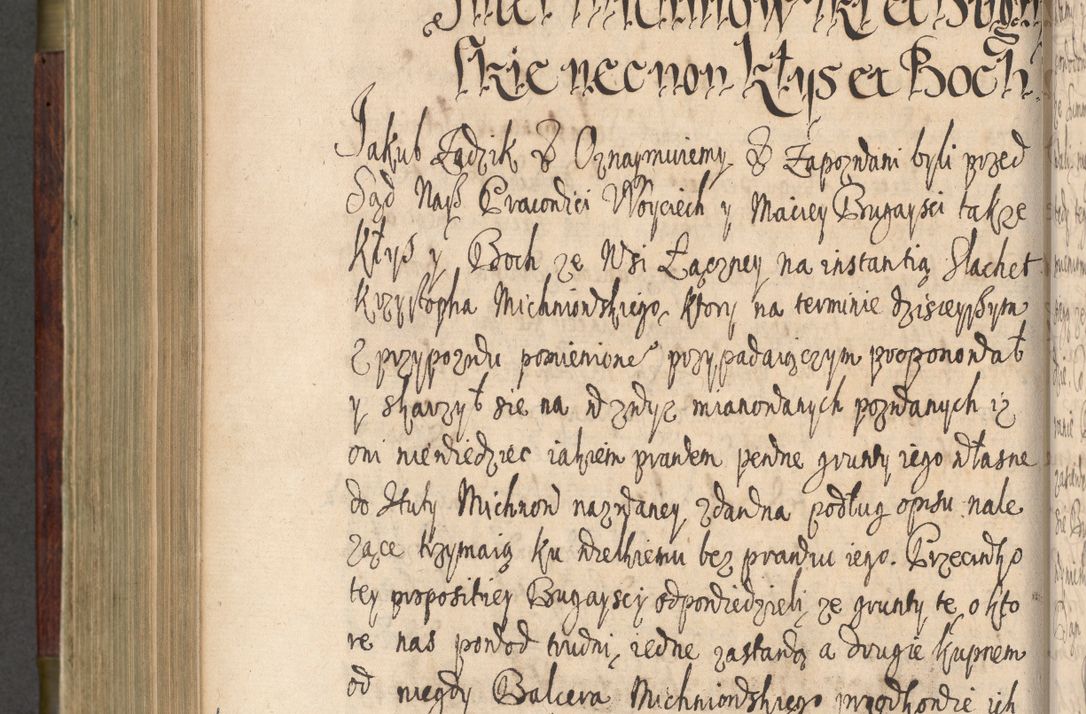 Inter Michniowski et Bugay
skie necnon Kłys et Boch
Jakub Zadzik & Oznaymuiemy & Zapozwani byli przed
Sąd Nasz Pracowici Woyciech y Maciey Bugaysci także
Kłys y Boch ze Wsi Łączney na instantią Slachet
Krzysztopha Michniowskiego, ktory na terminie dzisieyszym
z przypozwu pomienione° przypadaiączym proponował
y skarzył sie na wzwyz mianowanych pozwanych iz
oni niewiedziec iakiem prawem pewne grunty iego własne
do Huty Michnow nazwaney zdawna podług opisu nale
zące trzymaią ku wielkiemu bez prawiu iego. Przeciwko
tey propositiey Bugayscy odpowiedzieli ze grunty te o kto
re nas powod trudni, iedne zastawą a drugie kupnem
od niegdy Balcera Michniowskiego przodkowie ich